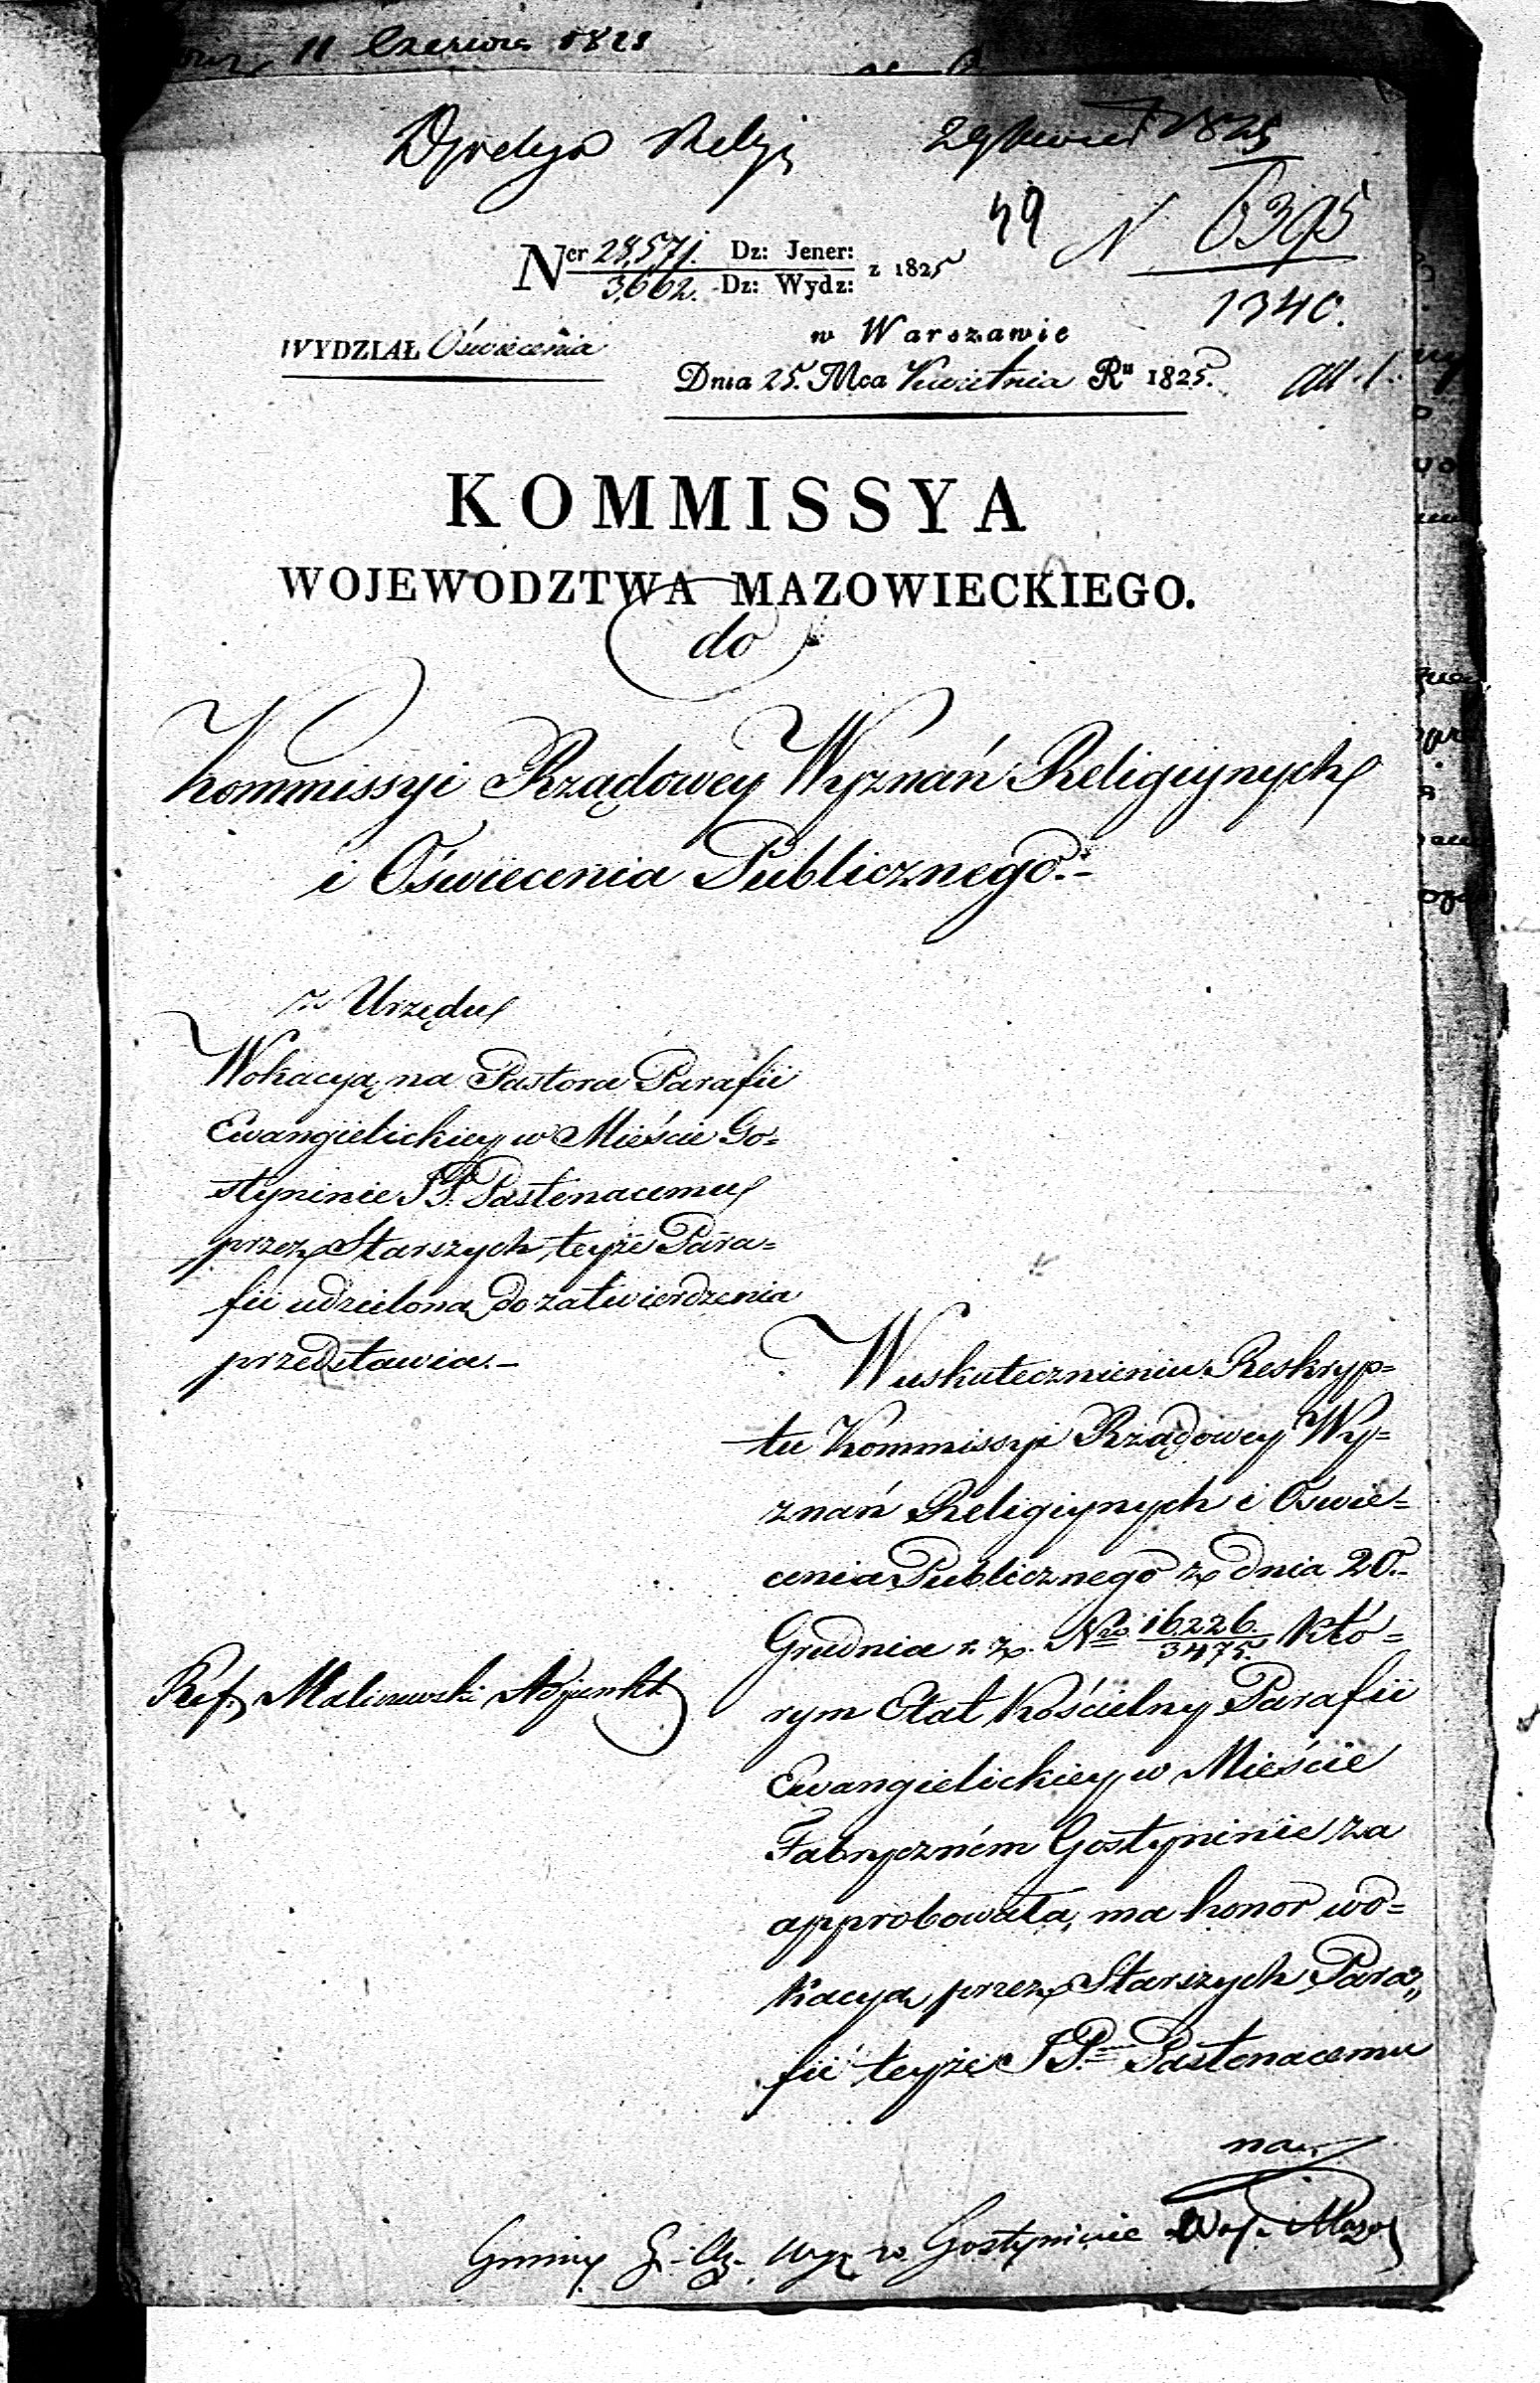 11 Czerwca 1821
29 Kwiet 1825
49 N 6395
1340.
Ner 28,571. Dz: Jener:
3,662. Dz: Wydz: z 1825
WYDZIAŁ Oświecenia
w Warszawie
Dnia 25. Mca Kwietnia Ru 1825.
KOMMISSYA
WOJEWODZTWA MAZOWIECKIEGO.
do
Kommissyi Rządowey Wyznań Religiynych
i Oświecenia Publicznego.-
z Urzędu
Wokacyą na Pastora Parafii
Ewangielickiey w Mieście Go=
styninie JP. Pastenacemu
przez Starszych teyże Para=
fii udzieloną do zatwierdzenia
przedstawia.-
Ref. Malinowski Adjunkt
W uskutecznieniu Reskryp=
tu Kommissyi Rządowey Wy=
znań Religiynych i Oświe=
cenia Publicznego z dnia 20.
Grudnia r. z. Nro 16226./3475. któ=
rym Etat Kościelny Parafii
Ewangielickiey w Mieście
Fabryczném Gostyninie za
approbowała, ma honor wo=
kacyą przez Starszych Para„
fii teyże JP. Pastenacemu
na
Gminy w Gostyninie Woj. Mazo